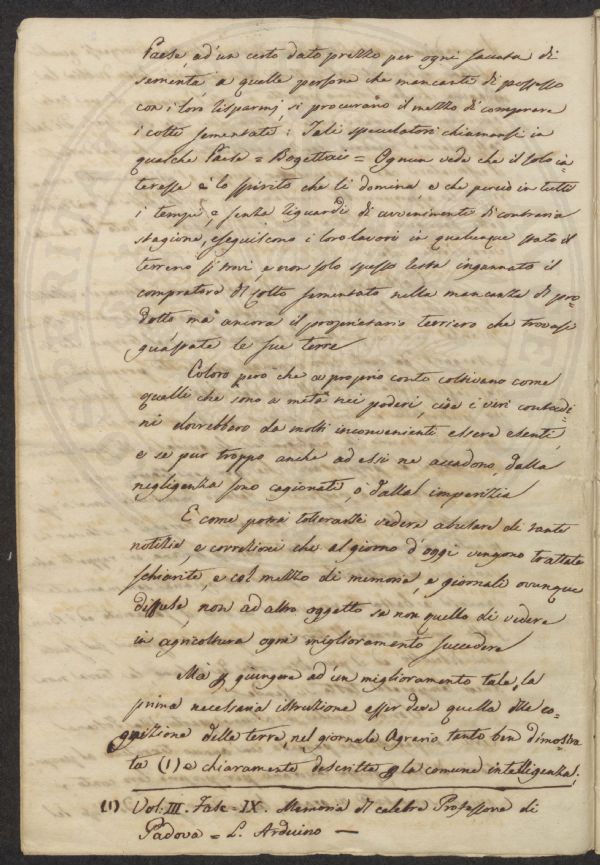 Paese, ad'un certo dato prezzo per ogni saccata di
sementa, a quelle persone che mancanti di possesso
con i loro risparmj, si procurano il mezzo di comprare
i cotti sementati: Tali speculatori chiamansi in
qualche Paese = Bogettai = Ognun vede che il solo in=
teresse è lo spirito che li domina, e che perciò in tutti
i tempi, e senza riguardi di avvenimenti di contraria
stagione, eseguiscono i loro lavori in qualunque stato il
terreno si trovi, e non solo spesso resta ingannato il
compratore di Cotto sementato nella mancanza di pro=
dotto mà ancora il proprietario terriero che trovasi
guastate le sue terre
Coloro però che a proprio conto coltivano come
quelli che sono a metà nei poderi, cioè i veri contadi=
ni dovrebbero da molti inconvenienti essere esenti,
e se pur troppo anche ad essi ne accadono, dalla
negligenza sono cagionati, o dalla imperizia
E come potrà tollerarsi vedere abusare di tante
notizie, e correzioni che al giorno d'oggi vengono trattate
schiarite, e col mezzo di memorie, e giornali ovunque
diffuse, non ad altro oggetto se non quello di vedere
in agricoltura ogni miglioramento succedere
Mà p giungere ad'un miglioramento tale, la
prima necessaria istruzione esser deve quella della co=
gnizione delle terre, nel giornale Agrario tanto ben dimostra
ta (1) e chiaramente descritta p la comune intelligenza.
(1) Vol. III. Fasc. IX. Memoria del celebre Professore di
Padova = L. Arduino —